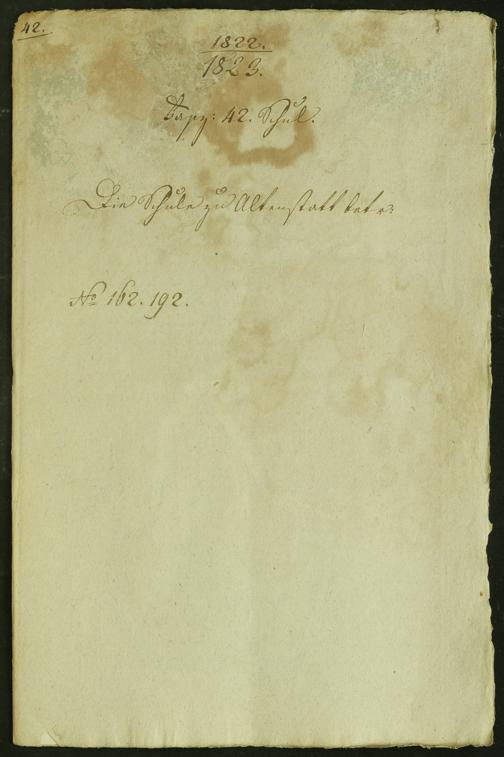 42.
1822.
1823.
Fasz: 42. Schul.
Die Schule zu Altenstatt betr:
No 162. 192.